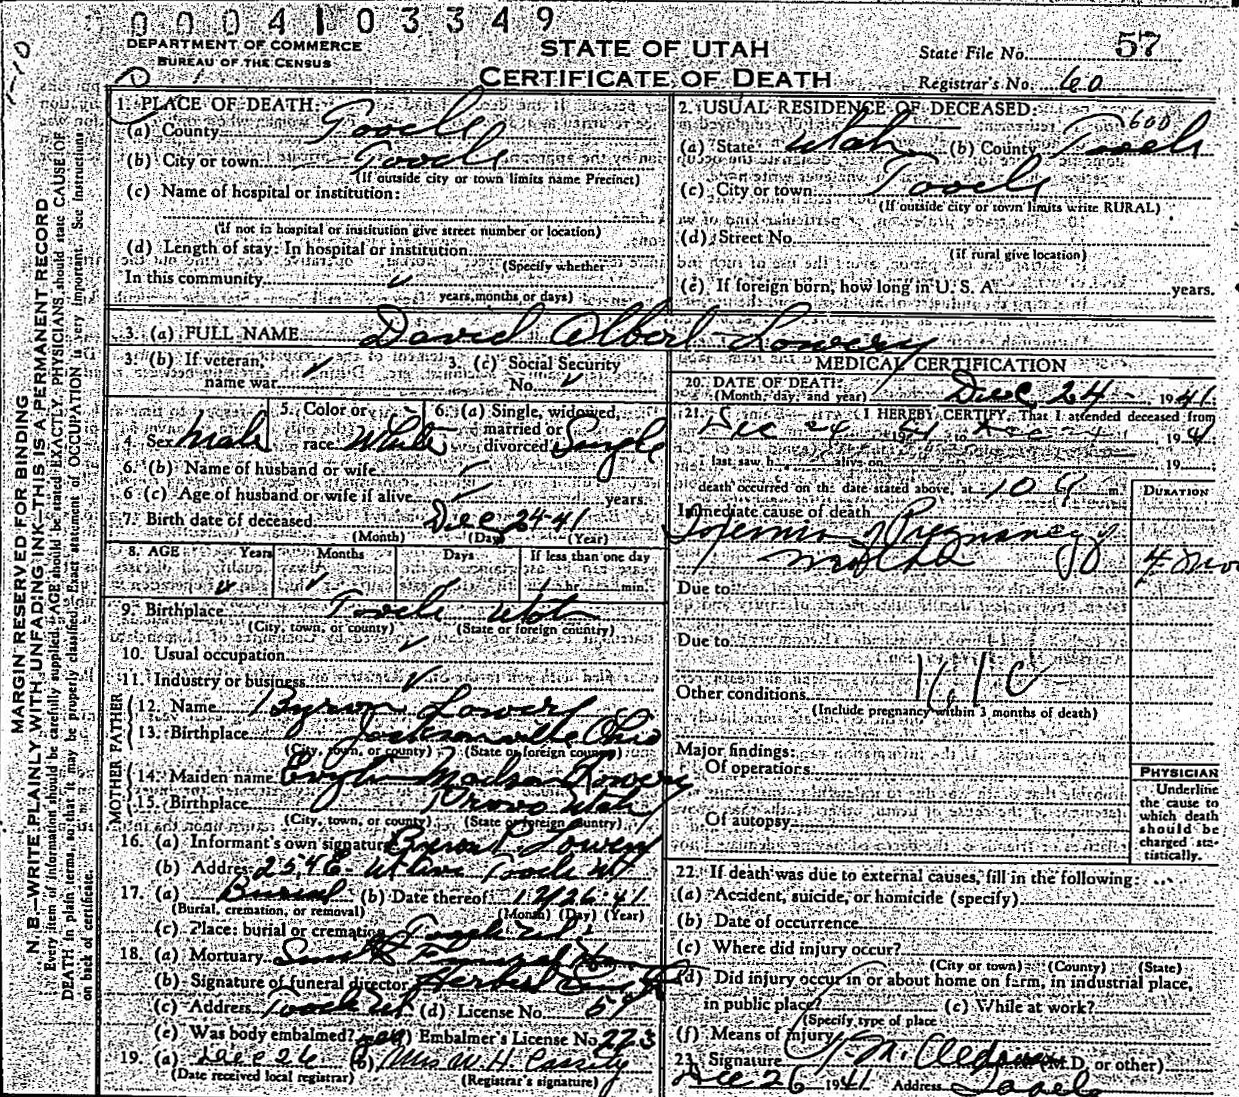 0004103349
DEPARTMENT OF COMMERCE
BUREAU OF THE CENSUS
STATE OF UTAH
CERTIFICATE OF DEATH
State File No. 57
Registrar's No. 60
MARGIN RESERVED FOR BINDING
N. B.—WRITE PLAINLY WITH UNFADING INK—THIS IS A PERMANENT RECORD
Every item of information should be carefully supplied. AGE should be stated EXACTLY. PHYSICIANS should state CAUSE OF
DEATH in plain terms, so that it may be properly classified. Exact statement of OCCUPATION is very important. See Instructions
on back of certificate.
1. PLACE OF DEATH:
(a) County Tooele
(b) City or town Tooele
(If outside city or town limits name Precinct)
(c) Name of hospital or institution:
(If not in hospital or institution give street number or location)
(d) Length of stay: In hospital or institution
(Specify whether
In this community
years, months or days)
2. USUAL RESIDENCE OF DECEASED:
600
(a) State Utah (b) County Tooele
(c) City or town Tooele
(If outside city or town limits write RURAL)
(d) Street No.
(if rural give location)
(e) If foreign born, how long in U. S. A. years.
3. (a) FULL NAME David Albert Lowery
3. (b) If veteran, name war
3. (c) Social Security No.
4. Sex Male
5. Color or race White
6. (a) Single, widowed, married or divorced Single
6. (b) Name of husband or wife
6 (c) Age of husband or wife if alive years.
7. Birth date of deceased Dec 24 41
(Month) (Day) (Year)
8. AGE Years Months Days If less than one day
hr. min.
9. Birthplace Tooele Utah
(City, town, or county) (State or foreign country)
10. Usual occupation
11. Industry or business
FATHER
12. Name Byron Lowery
13. Birthplace Jacksonville Ohio
(City, town, or county) (State or foreign country)
MOTHER
14. Maiden name Madsen Lowery
15. Birthplace Provo Utah
(City, town, or county) (State or foreign country)
16. (a) Informant's own signature Byron P. Lowery
(b) Address 254 E. Tooele Ut
17. (a) Burial (b) Date thereof 12/26-41
(Burial, cremation, or removal) (Month) (Day) (Year)
(c) Place: burial or cremation Tooele Ut
18. (a) Mortuary Funeral Home
(b) Signature of funeral director Herbert
(c) Address Tooele Ut. (d) License No.
(e) Was body embalmed? (f) Embalmer's License No. 223
19. (a) Dec 26 (b) Mrs W. H. Cassity
(Date received local registrar) (Registrar's signature)
MEDICAL CERTIFICATION
20. DATE OF DEATH: Dec 24 1941
(Month, day, and year)
21. I HEREBY CERTIFY, That I attended deceased from
Dec 24 1941 to Dec 24 1941
I last saw h alive on 19
death occurred on the date stated above, at m.
DURATION
Immediate cause of death
Pregnancy of
mother 4 mo
Due to
Due to
Other conditions
(Include pregnancy within 3 months of death)
Major findings:
Of operations
Of autopsy
PHYSICIAN
Underline
the cause to
which death
should be
charged sta-
tistically.
22. If death was due to external causes, fill in the following:
(a) Accident, suicide, or homicide (specify)
(b) Date of occurrence
(c) Where did injury occur?
(City or town) (County) (State)
(d) Did injury occur in or about home on farm, in industrial place,
in public place? (e) While at work?
(Specify type of place
(f) Means of injury
23. Signature (M.D. or other)
Dec 26 1941 Address Tooele